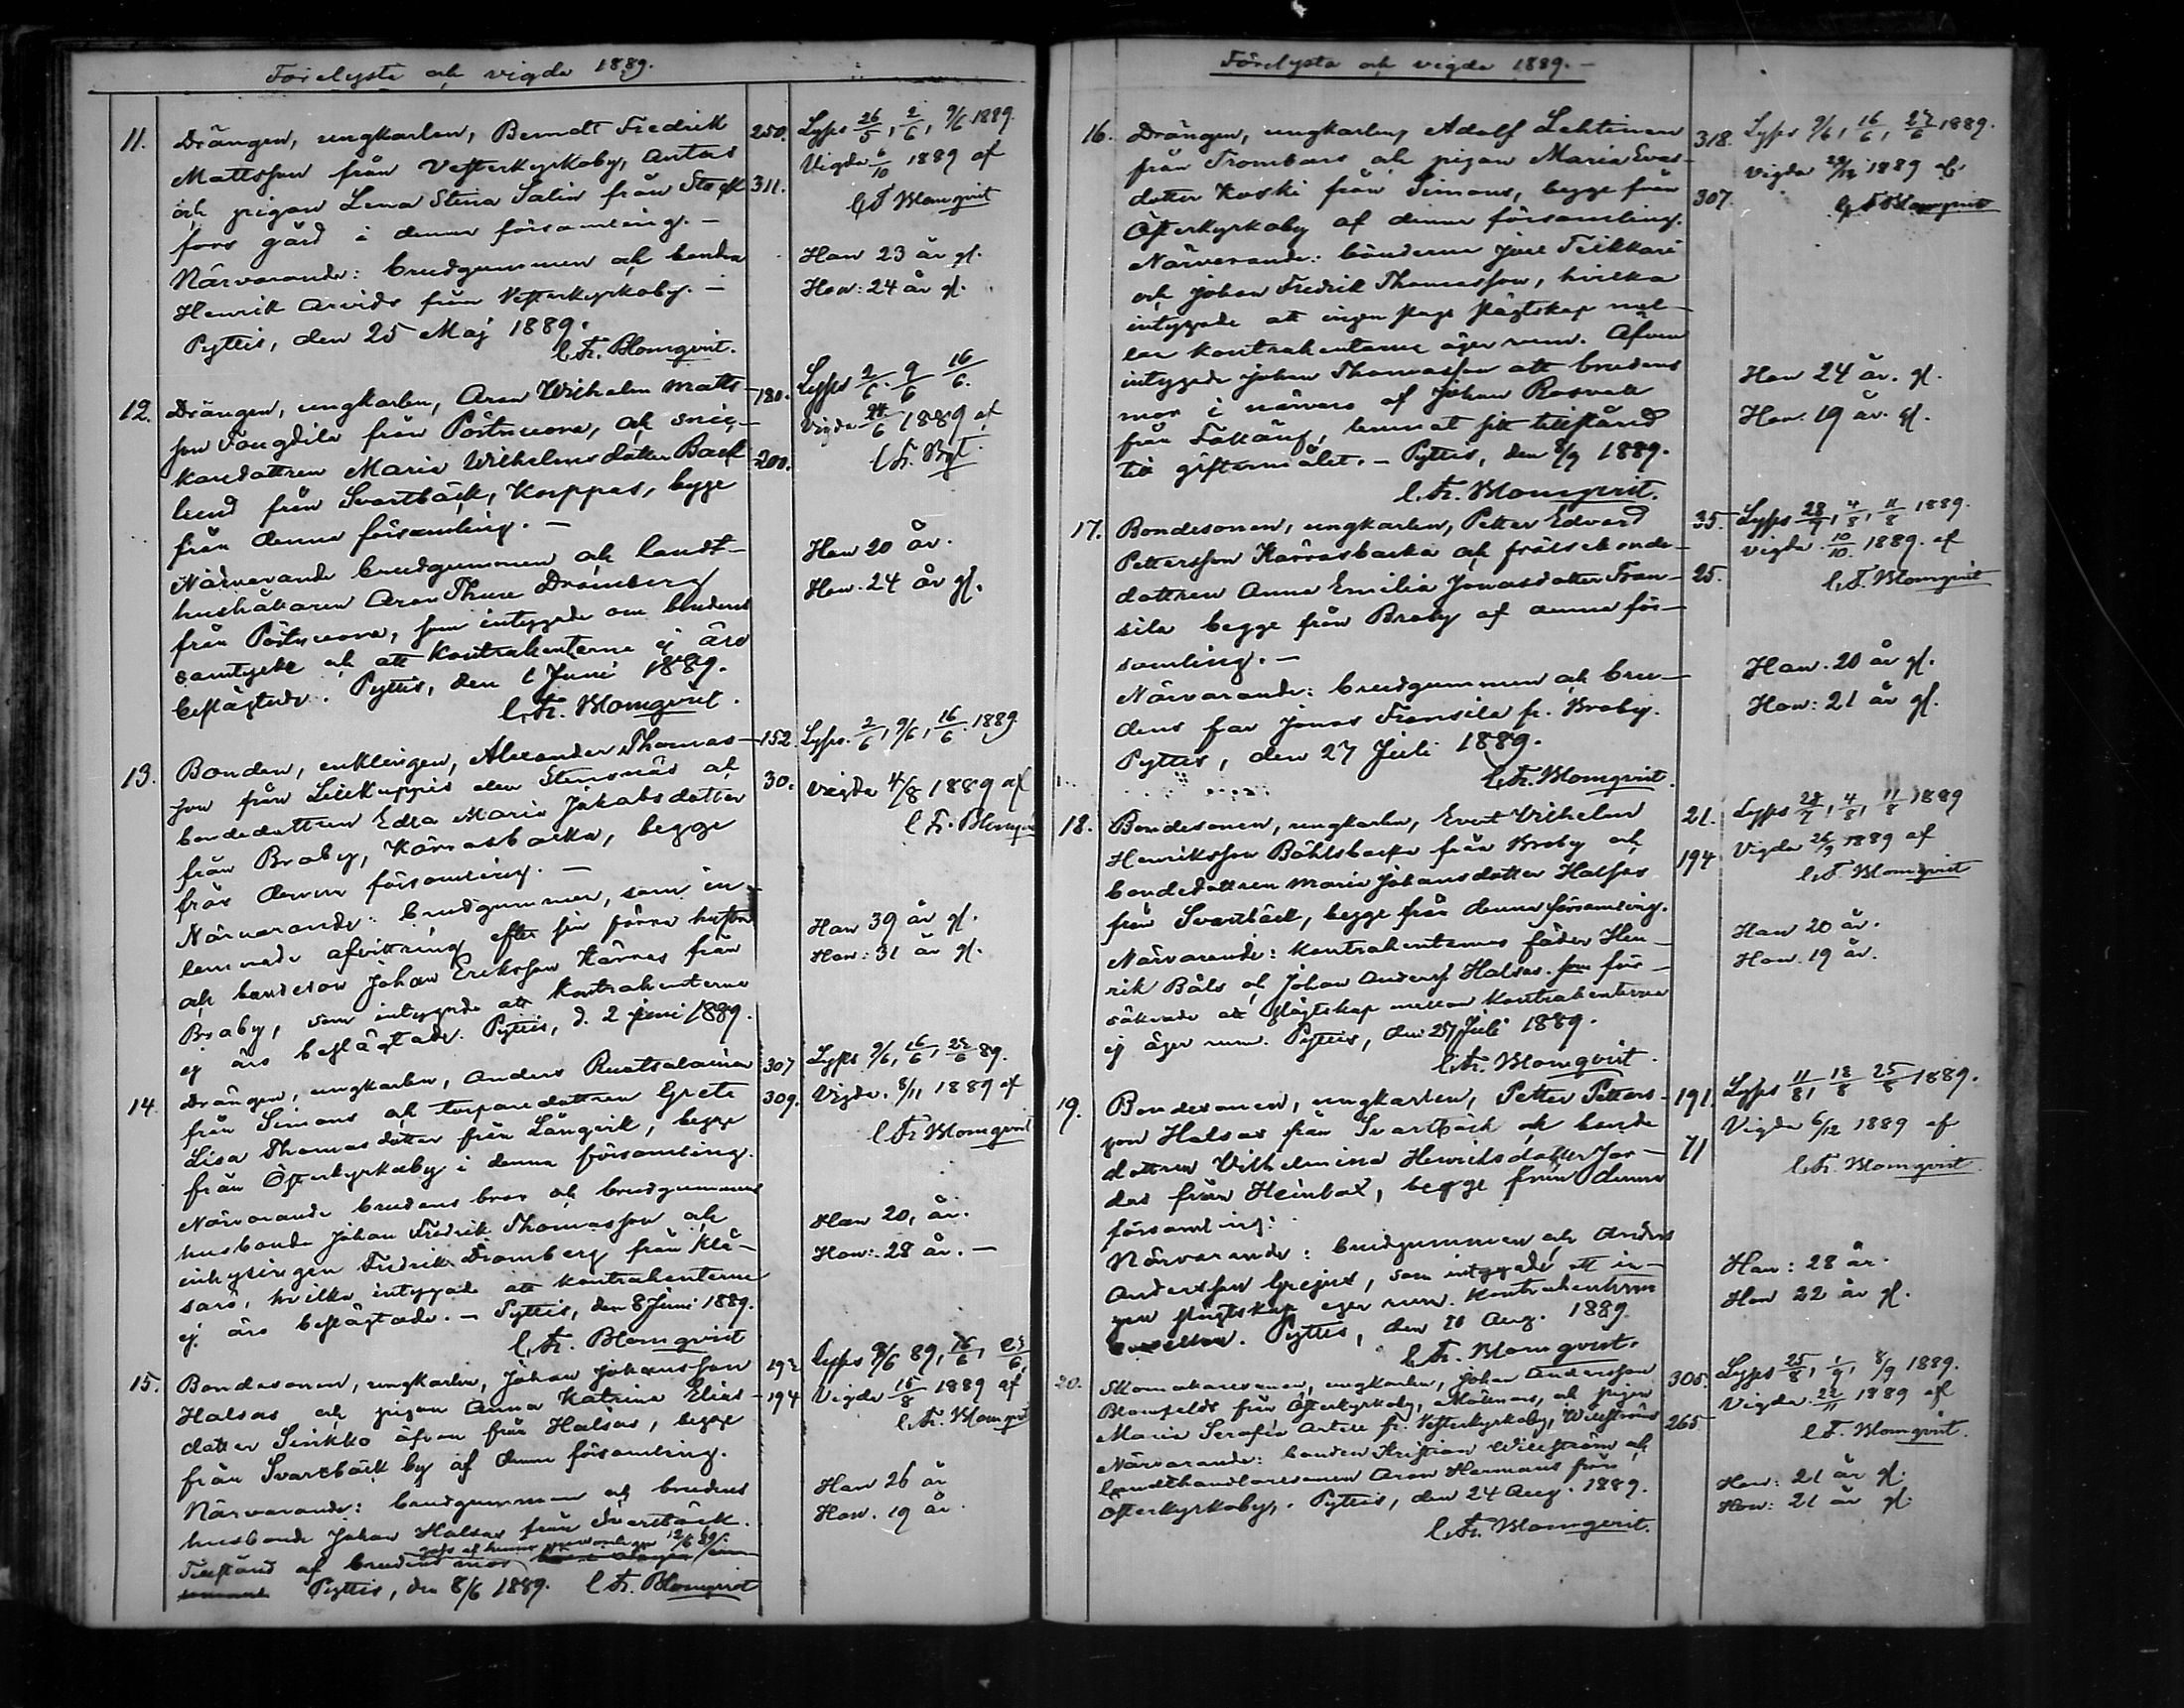 Förelysta och vigda 1889.
11. Drängen, ungkarlen, Berndt Fredrik
Mattsson från Vesterkyrkoby, Antas
och pigan Lena Stina Salin från Stock
fors gård i denna församling. —
Närvarande: brudgummen och bonden
Henrik Arvids från Vesterkyrkoby. —
Pyttis, den 25 Maj 1889.
C. Fr. Blomqvist.
250.
311.
Lyses 26/5, 2/6, 9/6 1889
Vigda 6/10 1889 af
C F Blomqvist
Han 23 år gl.
Hon: 24 år gl.
12. Drängen, ungkarlen, Aron Wilhelm Matts-
son Fougdila från Pörtnuora, och snic-
karedottren Maria Wilhelmsdotter Back
lund från Svartbäck, Korppas, begge
från denna församling. —
Närvarande brudgummen och landt-
hushållaren Aron Thure Dromberg
från Pörtnuora, som intygade om brudens
samtycke och att kontrahenterna ej äro
beslägtade. Pyttis, den 1 Juni 1889.
C. Fr. Blomqvist.
180.
200.
Lyses 2/6. 9/6 16/6.
Vigda 24/6 1889 af
C Fr. Bqt.
Han 20 år.
Hon. 24 år gl.
13. Bonden, enklingen, Alexander Thomas-
son från Lillkuppis eller Stensnäs och
bondedottren Edla Maria Jakobsdotter
från Broby, Kärrasbacka, begge
från denna församling. —
Närvarande: brudgummen, som in-
lemnade afvittring efter sin förra hustru
och bondeson Johan Eriksson Kärras från
Broby, som intygade att kontrahenterna
ej äro beslägtade. Pyttis, d. 2 juni 1889.
152.
30.
Lyses. 2/6, 9/6, 16/6. 1889
Vigda 4/8 1889 af
C Fr. Blomqvi
Han 39 år gl.
Hon: 31 år gl.
14. Drängen, ungkarlen, Anders Ruotsalainen
från Simons och torparedottren Greta
Lisa Thomasdotter från Långvik, begge
från Österkyrkoby i denna församling.
Närvarande brudens bror och brudgummens
husbonde Johan Fredrik Thomasson och
inhysingen Fredrik Dromberg från Klå-
sarö, hvilka intygade att kontrahenterna
ej äro beslägtade. — Pyttis, den 8 Juni 1889.
C. Fr. Blomqvist
307
309.
Lyses 9/6, 16/6, 23/6 89.
Vigda. 8/11 1889 af
C Fr Blomqvist
Han 20, år.
Hon: 28 år. —
15. Bondesonen, ungkarlen, Johan Johansson
Halsas och pigan Anna Katrina Elias-
dotter Sirikko äfven från Halsas, begge
från Svartbäck by af denna församling.
Närvarande: brudgummen och brudens
husbonde Johan Halsas från Svartbäck.
Tillstånd af brudens mor gafs af henne personligen 12/6 89
Pyttis, den 8/6 1889. C Fr. Blomqvist
192
194
Lyses 9/6 89, 16/6, 23/6
Vigda 15/8 1889 af
C Fr. Blomqvist
Han 26 år
Hon. 19 år.
Förelysta och vigda 1889. —
16. Drängen, ungkarlen, Adolf Lehtinen
från Trombars och pigan Maria Evas-
dotter Koski från Simons, begge från
Österkyrkoby af denna församling.
Närvarande: bönderna Joel Teikkari
och Johan Fredrik Thomasson, hvilka
intygade att ingen slags slägtskap mel-
lan kontrahenterna äger rum. Äfven
intygade Johan Thomasson att brudens
mor i närvaro af Johan Rosvall
från Fallängs, lemnat sitt tillstånd
till giftermålet. — Pyttis, den 8/9 1889.
C. Fr. Blomqvist.
318.
307.
Lyses 9/6, 16/6, 23/6 1889.
Vigda 29/12 1889 af.
C F Blomqvist
Han 24 år. gl.
Hon. 19 år. gl.
17. Bondesonen, ungkarlen, Petter Edvard
Pettersson Kärrasbacka och frälsebonde-
dottren Anna Emilia Jonasdotter Fran-
sila begge från Broby af denna för-
samling. —
Närvarande: brudgummen och bru-
dens far Jonas Fransila fr. Broby.
Pyttis, den 27 Juli 1889.
C. Fr. Blomqvist.
35.
25.
Lyses 28/7, 4/8, 11/8 1889.
Vigda. 10/10. 1889. af
C. F. Blomqvist
Han. 20 år gl.
Hon: 21 år gl.
18. Bondesonen, ungkarlen, Evert Vilhelm
Henriksson Båhlsbacka från Broby och
bondedottren Maria Johansdotter Halsas
från Svartbäck, begge från denna församling.
Närvarande: kontrahenternas fäder Hen-
rik Båls och Johan Anderss. Halsas. som för-
säkrade att slägtskap mellan kontrahenterna
ej äger rum. Pyttis, den 27 Juli 1889.
C. Fr. Blomqvist.
21.
194
Lyses 28/7, 4/8, 11/8 1889
Vigda 26/9 1889 af
C. F. Blomqvist
Han 20 år.
Hon. 19 år.
19. Bondesonen, ungkarlen, Petter Petters-
son Halsas från Svartbäck och bonde
dottren Vilhelmina Henriksdotter Jor-
das från Heinlax, begge från denna
församling.
Närvarande: brudgummen och Anders
Andersson Grejus, som intygade att in-
gen slägtskap eger rum. Kontrahenterna
emellan. Pyttis, den 10 Aug. 1889.
C. Fr. Blomqvist.
191.
71
Lyses 11/8, 18/8 25/8 1889.
Vigda 6/12 1889 af
C. Fr. Blomqvist.
Han: 28 år.
Hon 22 år gl.
20. Skomakaresonen, ungkarlen, Johan Andersson
Blomfeldt från Österkyrkoby, Mölnars, och pigan
Maria Serafia Antell fr. Vesterkyrkoby, Willströms
Närvarande: bonden Kristian Willström och
landthandlaresonen Aron Hermans från
Österkyrkoby. Pyttis, den 24 Aug. 1889.
C. Fr. Blomqvist.
305.
265
Lyses 25/8, 1/9, 8/9 1889.
Vigda 22/11 1889 af
C. F. Blomqvist.
Han: 21 år gl.
Hon: 21 år gl.